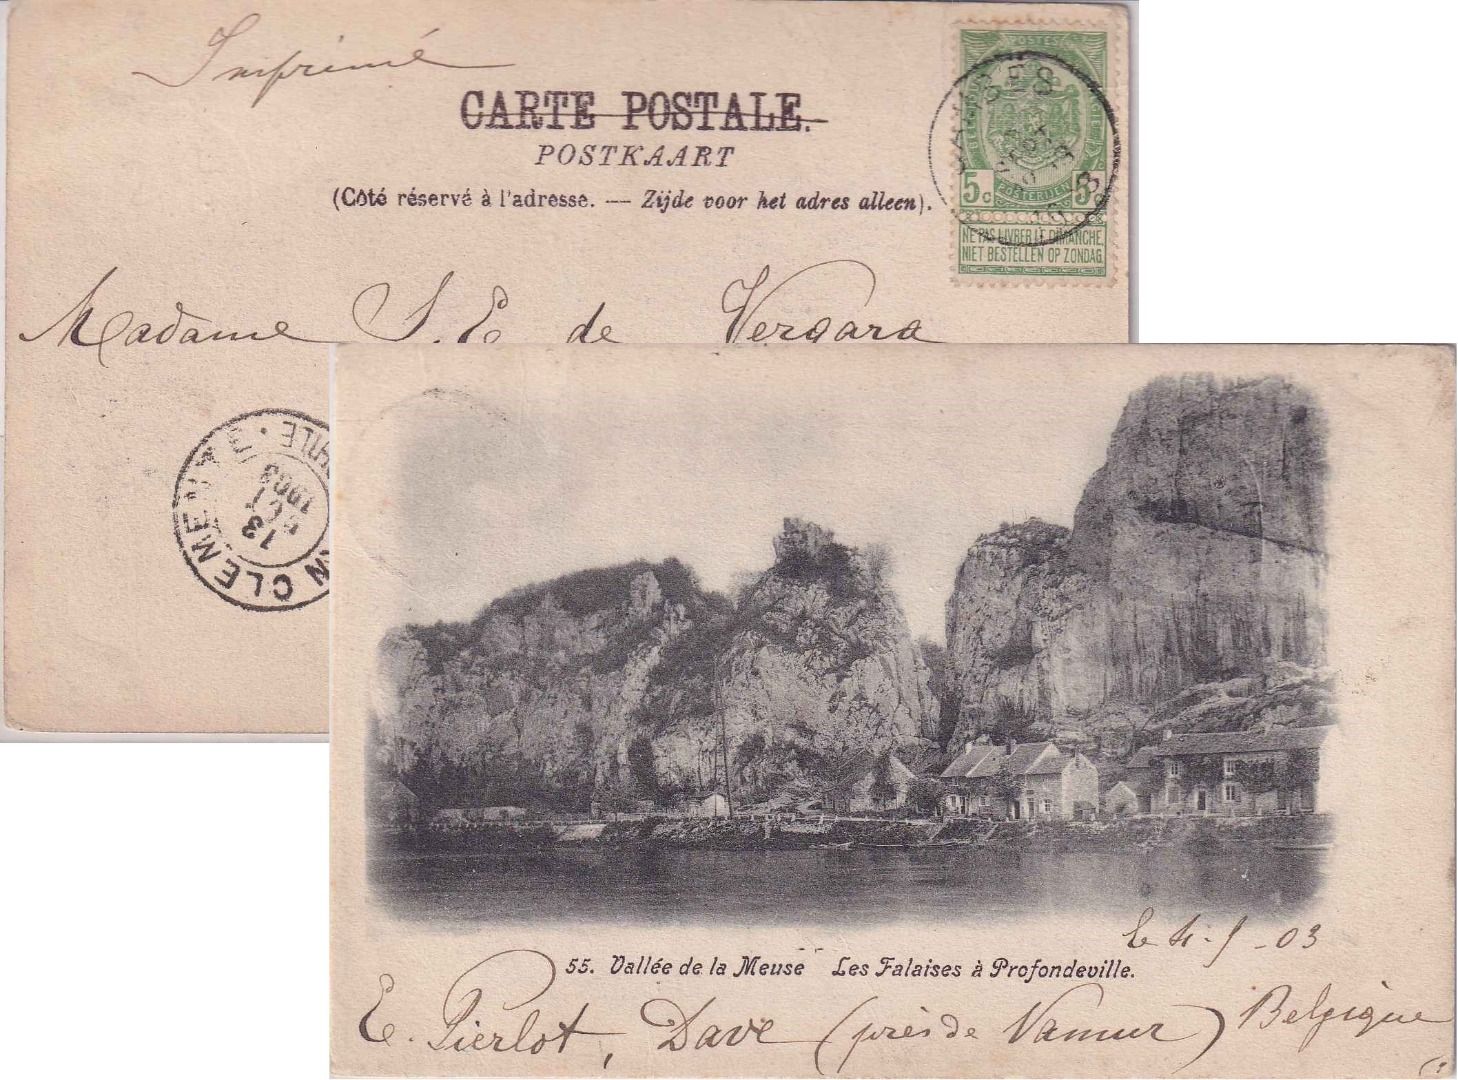 Imprimé
CARTE POSTALE.
POSTKAART
(Côté réservé à l'adresse. — Zijde voor het adres alleen).
POSTES
5c 5c
POSTERIJEN
NE PAS LIVRER LE DIMANCHE.
NIET BESTELLEN OP ZONDAG.
JAMBES
Madame S. E. de Vergara
N CLEMENTE
13
OCT
1903
le 4-9-03
55. Vallée de la Meuse Les Falaises à Profondeville.
E. Pierlot, Dave (près de Namur) Belgique